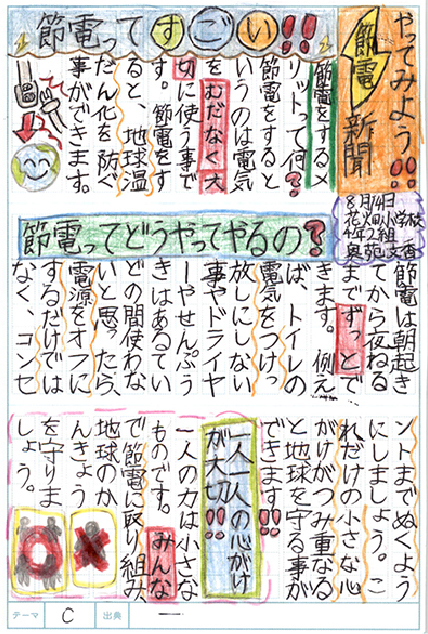 やってみよう!!
節電新聞
8月14日
花畑小学校
4年2組
奥苑文香
節電ってすごい!!
節電をするメ
リットって何?
節電をすると
いうのは電気
をむだなく大
切に使う事で
す。節電をす
ると、地球温
だん化を防ぐ
事ができます。
節電ってどうやってやるの?
節電は朝起き
てから夜ねる
までずっとで
きます。例え
ば、トイレの
電気をつけっ
放しにしない
事やドライヤ
ーやせんぷう
きはあるてい
どの間使わな
いと思ったら、
電源をオフに
するだけでは
なく、コンセ
ントまでぬくよう
にしましょう。こ
れだけの小さな心
がけがつみ重なる
と地球を守る事が
できます!!
一人一人の心がけ
が大切!!
一人の力は小さな
ものです。みんな
で節電に取り組み、
地球のか
んきょう
を守りま
しょう。
テーマ C 出典 ー